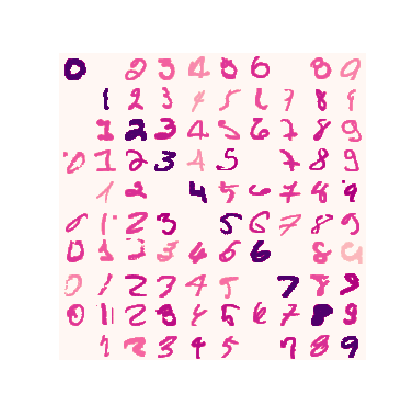 0 2 3 4 5 6 8 9
1 2 3 4 5 6 7 8 9
1 2 3 4 5 6 7 8 9
0 1 2 3 4 5 7 8 9
1 2 4 5 6 7 8 9
0 1 2 3 5 6 7 8 9
0 1 2 3 4 5 6 8 9
0 1 2 3 4 5 7 8 9
0 1 2 3 4 5 6 7 8 9
1 2 3 4 5 7 8 9